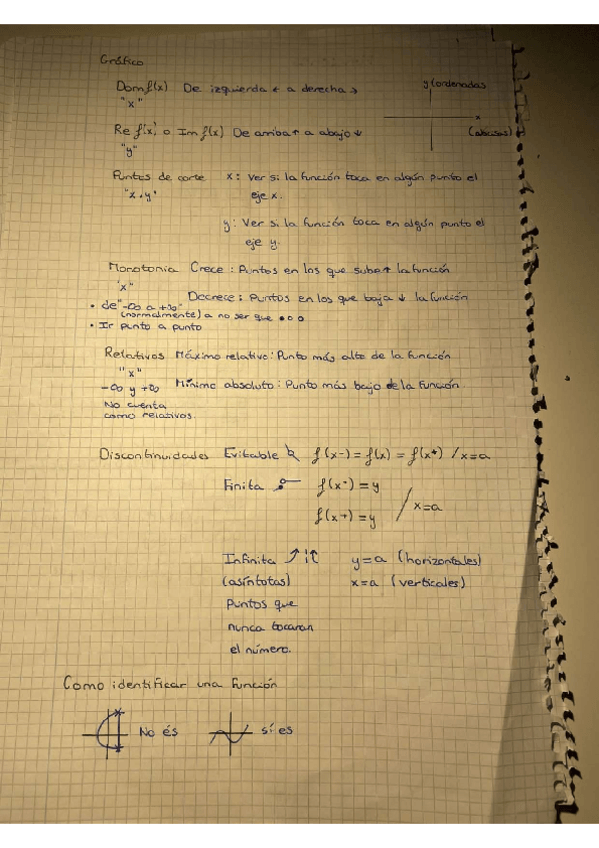 Gráfico
Dom f(x) De izquierda ← a derecha →
"x"
y (ordenadas
x
(abscisas)
Re f(x) o Im f(x) De arriba ↑ a abajo ↓
"y"
Puntos de corte x: Ver si la función toca en algún punto el
"x, y" eje x.
y: Ver si la función toca en algún punto el
eje y.
Monotonía Crece: Puntos en los que sube ↑ la función
"x"
Decrece: Puntos en los que baja ↓ la función
• de "-∞ a +∞"
(normalmente) a no ser que •oo
• Ir punto a punto
Relativos Máximo relativo: Punto más alto de la función
"x"
-∞ y +∞ Mínimo absoluto: Punto más bajo de la función.
No cuenta
como relativos.
Discontinuidades Evitable f(x-) = f(x) = f(x+) / x=a
Finita f(x-) = y
f(x+) = y / x=a
Infinita y=a (horizontales)
(asíntotas) x=a (verticales)
Puntos que
nunca tocaran
el número.
Como identificar una función
No és sí es